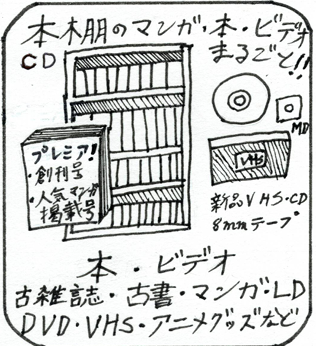 本棚のマンガ・本・ビデオ
まるごと!!
CD
MD
VHS
プレミア!
・創刊号
・人気マンガ
掲載号
新品VHS・CD
8mmテープ
本・ビデオ
古雑誌・古書・マンガLD
DVD・VHS・アニメグッズなど